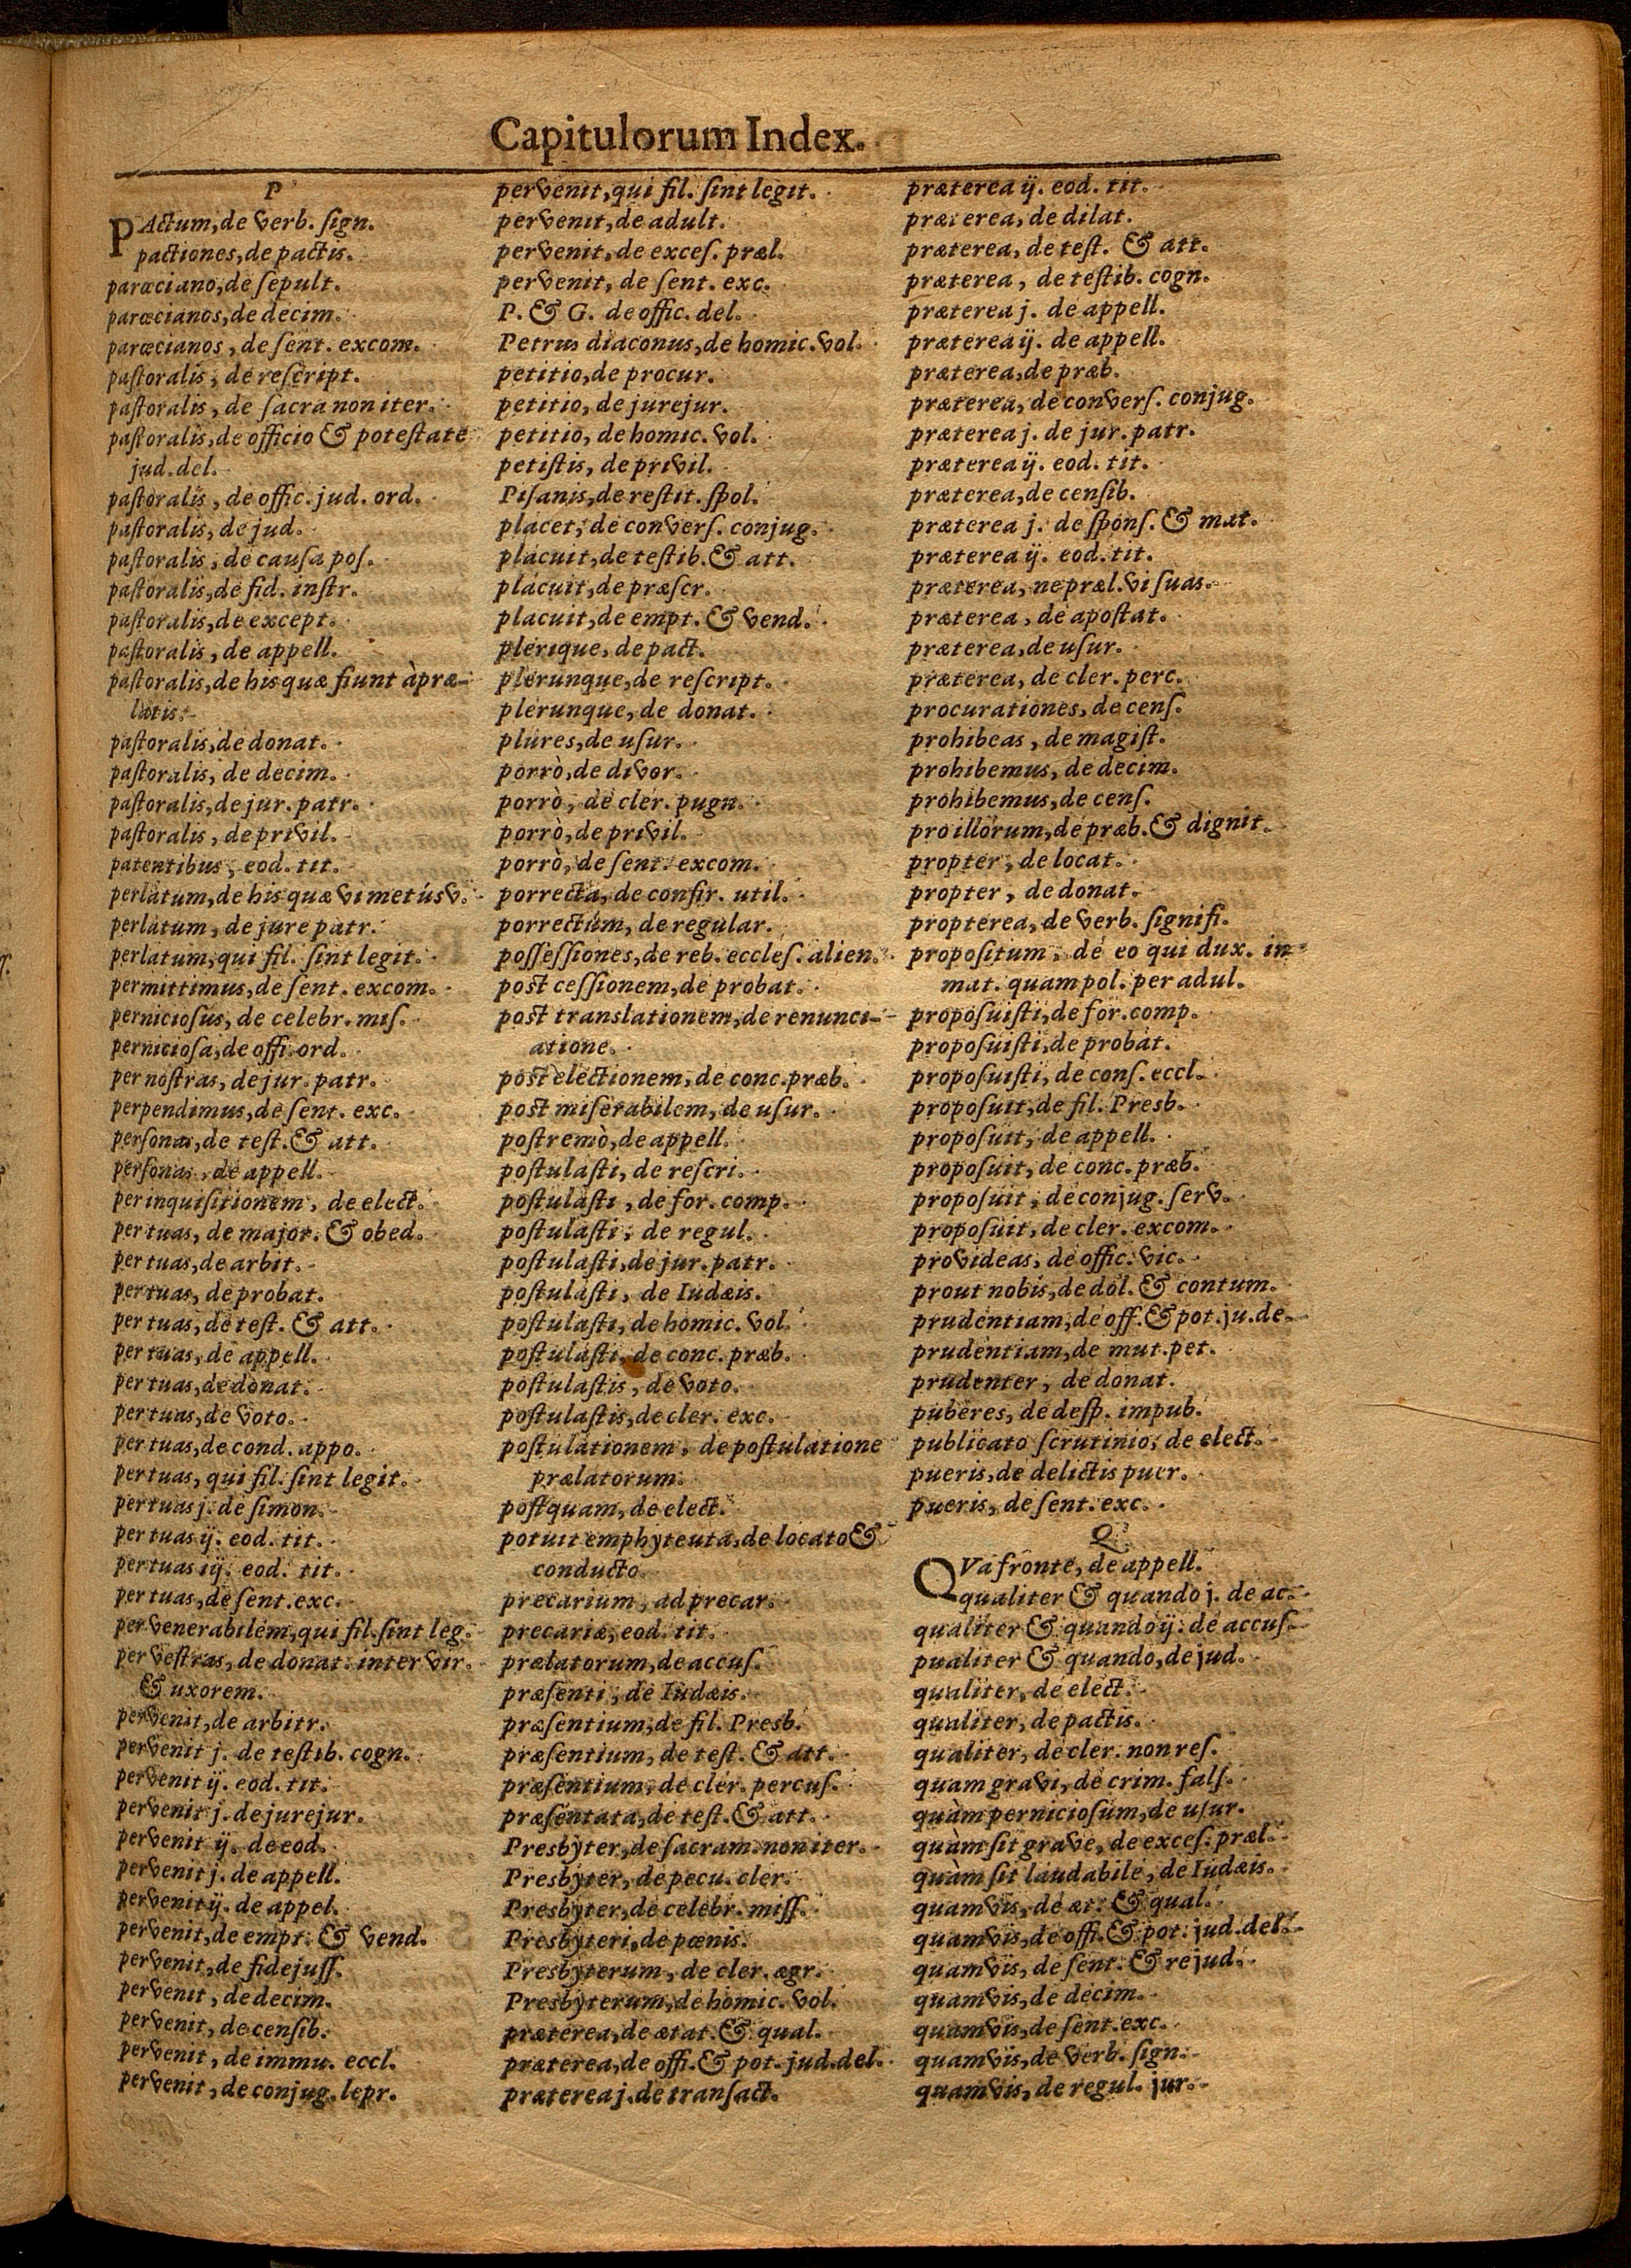 Capitulorum Index.
P
PActum, de verb. sign.
pactiones, de pactis.
parœciano, de sepult.
parœcianos, de decim.
parœcianos, de sent. excom.
pastoralis, de rescript.
pastoralis, de sacra non iter.
pastoralis, de officio & potestate
jud. del.
pastoralis, de offic. jud. ord.
pastoralis, de jud.
pastoralis, de causa pos.
pastoralis, de fid. instr.
pastoralis, de except.
pastoralis, de appell.
pastoralis, de his quæ fiunt à præ-
latis.
pastoralis, de donat.
pastoralis, de decim.
pastoralis, de jur. patr.
pastoralis, de privil.
patentibus, eod. tit.
perlatum, de his quæ vi metúsv.
perlatum, de jure patr.
perlatum, qui fil. sint legit.
permittimus, de sent. excom.
perniciosus, de celebr. mis.
perniciosa, de offi. ord.
per nostras, de jur. patr.
perpendimus, de sent. exc.
personas, de test. & att.
personas, de appell.
per inquisitionem, de elect.
per tuas, de major. & obed.
per tuas, de arbit.
per tuas, de probat.
per tuas, de test. & att.
per tuas, de appell.
per tuas, de donat.
per tuas, de voto.
per tuas, de cond. appo.
per tuas, qui fil. sint legit.
per tuas j. de simon.
per tuas ij. eod. tit.
per tuas iij. eod. tit.
per tuas, de sent. exc.
per venerabilem, qui fil. sint leg.
per vestras, de donat. inter vir.
& uxorem.
pervenit, de arbitr.
pervenit j. de testib. cogn.
pervenit ij. eod. tit.
pervenit j. de jurejur.
pervenit ij. de eod.
pervenit j. de appell.
pervenit ij. de appel.
pervenit, de empt. & vend.
pervenit, de fidejuss.
pervenit, de decim.
pervenit, de censib.
pervenit, de immu. eccl.
pervenit, de conjug. lepr.
pervenit, qui fil. sint legit.
pervenit, de adult.
pervenit, de exces. præl.
pervenit, de sent. exc.
P. & G. de offic. del.
Petrus diaconus, de homic. vol.
petitio, de procur.
petitio, de jurejur.
petitio, de homic. vol.
petistis, de privil.
Pisanis, de restit. spol.
placet, de convers. conjug.
placuit, de testib. & att.
placuit, de præscr.
placuit, de empt. & vend.
plerique, de pact.
plerunque, de rescript.
plerunque, de donat.
plures, de usur.
porrò, de divor.
porrò, de cler. pugn.
porrò, de privil.
porrò, de sent. excom.
porrecta, de confir. util.
porrectum, de regular.
possessiones, de reb. eccles. alien.
post cessionem, de probat.
post translationem, de renunci-
atione.
post electionem, de conc. præb.
post miserabilem, de usur.
postremò, de appell.
postulasti, de rescri.
postulasti, de for. comp.
postulasti, de regul.
postulasti, de jur. patr.
postulasti, de Iudæis.
postulasti, de homic. vol.
postulasti, de conc. præb.
postulastis, de voto.
postulastis, de cler. exc.
postulationem, de postulatione
prælatorum.
postquam, de elect.
potuit emphyteuta, de locato &
conducto.
precarium, ad precar.
precariæ, eod. tit.
prælatorum, de accus.
præsenti, de Iudæis.
præsentium, de fil. Presb.
præsentium, de test. & att.
præsentium, de cler. percus.
præsentata, de test. & att.
Presbyter, de sacram. non iter.
Presbyter, de pecu. cler.
Presbyter, de celebr. miss.
Presbyteri, de pœnis.
Presbyterum, de cler. ægr.
Presbyterum, de homic. vol.
præterea, de ætat. & qual.
præterea, de offi. & pot. jud. del.
præterea j. de transact.
præterea ij. eod. tit.
præterea, de dilat.
præterea, de test. & att.
præterea, de testib. cogn.
præterea j. de appell.
præterea ij. de appell.
præterea, de præb.
præterea, de convers. conjug.
præterea j. de jur. patr.
præterea ij. eod. tit.
præterea, de censib.
præterea j. de spons. & mat.
præterea ij. eod. tit.
præterea, ne præl. vi suas.
præterea, de apostat.
præterea, de usur.
præterea, de cler. perc.
procurationes, de cens.
prohibeas, de magist.
prohibemus, de decim.
prohibemus, de cens.
pro illorum, de præb. & dignit.
propter, de locat.
propter, de donat.
propterea, de verb. signifi.
propositum, de eo qui dux. in
mat. quam pol. per adul.
proposuisti, de for. comp.
proposuisti, de probat.
proposuisti, de cons. eccl.
proposuit, de fil. Presb.
proposuit, de appell.
proposuit, de conc. præb.
proposuit, de conjug. serv.
proposuit, de cler. excom.
provideas, de offic. vic.
prout nobis, de dol. & contum.
prudentiam, de off. & pot. ju. de.
prudentiam, de mut. pet.
prudenter, de donat.
puberes, de desp. impub.
publicato scrutinio, de elect.
pueris, de delictis puer.
pueris, de sent. exc.
Q
QVa fronte, de appell.
qualiter & quando j. de ac.
qualiter & quando ij. de accus.
pualiter & quando, de jud.
qualiter, de elect.
qualiter, de pactis.
qualiter, de cler. non res.
quam gravi, de crim. fals.
quàm perniciosum, de usur.
quàm sit grave, de exces. præl.
quàm sit laudabile, de Iudæis.
quamvis, de æt. & qual.
quamvis, de offi. & pot. jud. del.
quamvis, de sent. & re jud.
quamvis, de decim.
quamvis, de sent. exc.
quamvis, de verb. sign.
quamvis, de regul. jur.